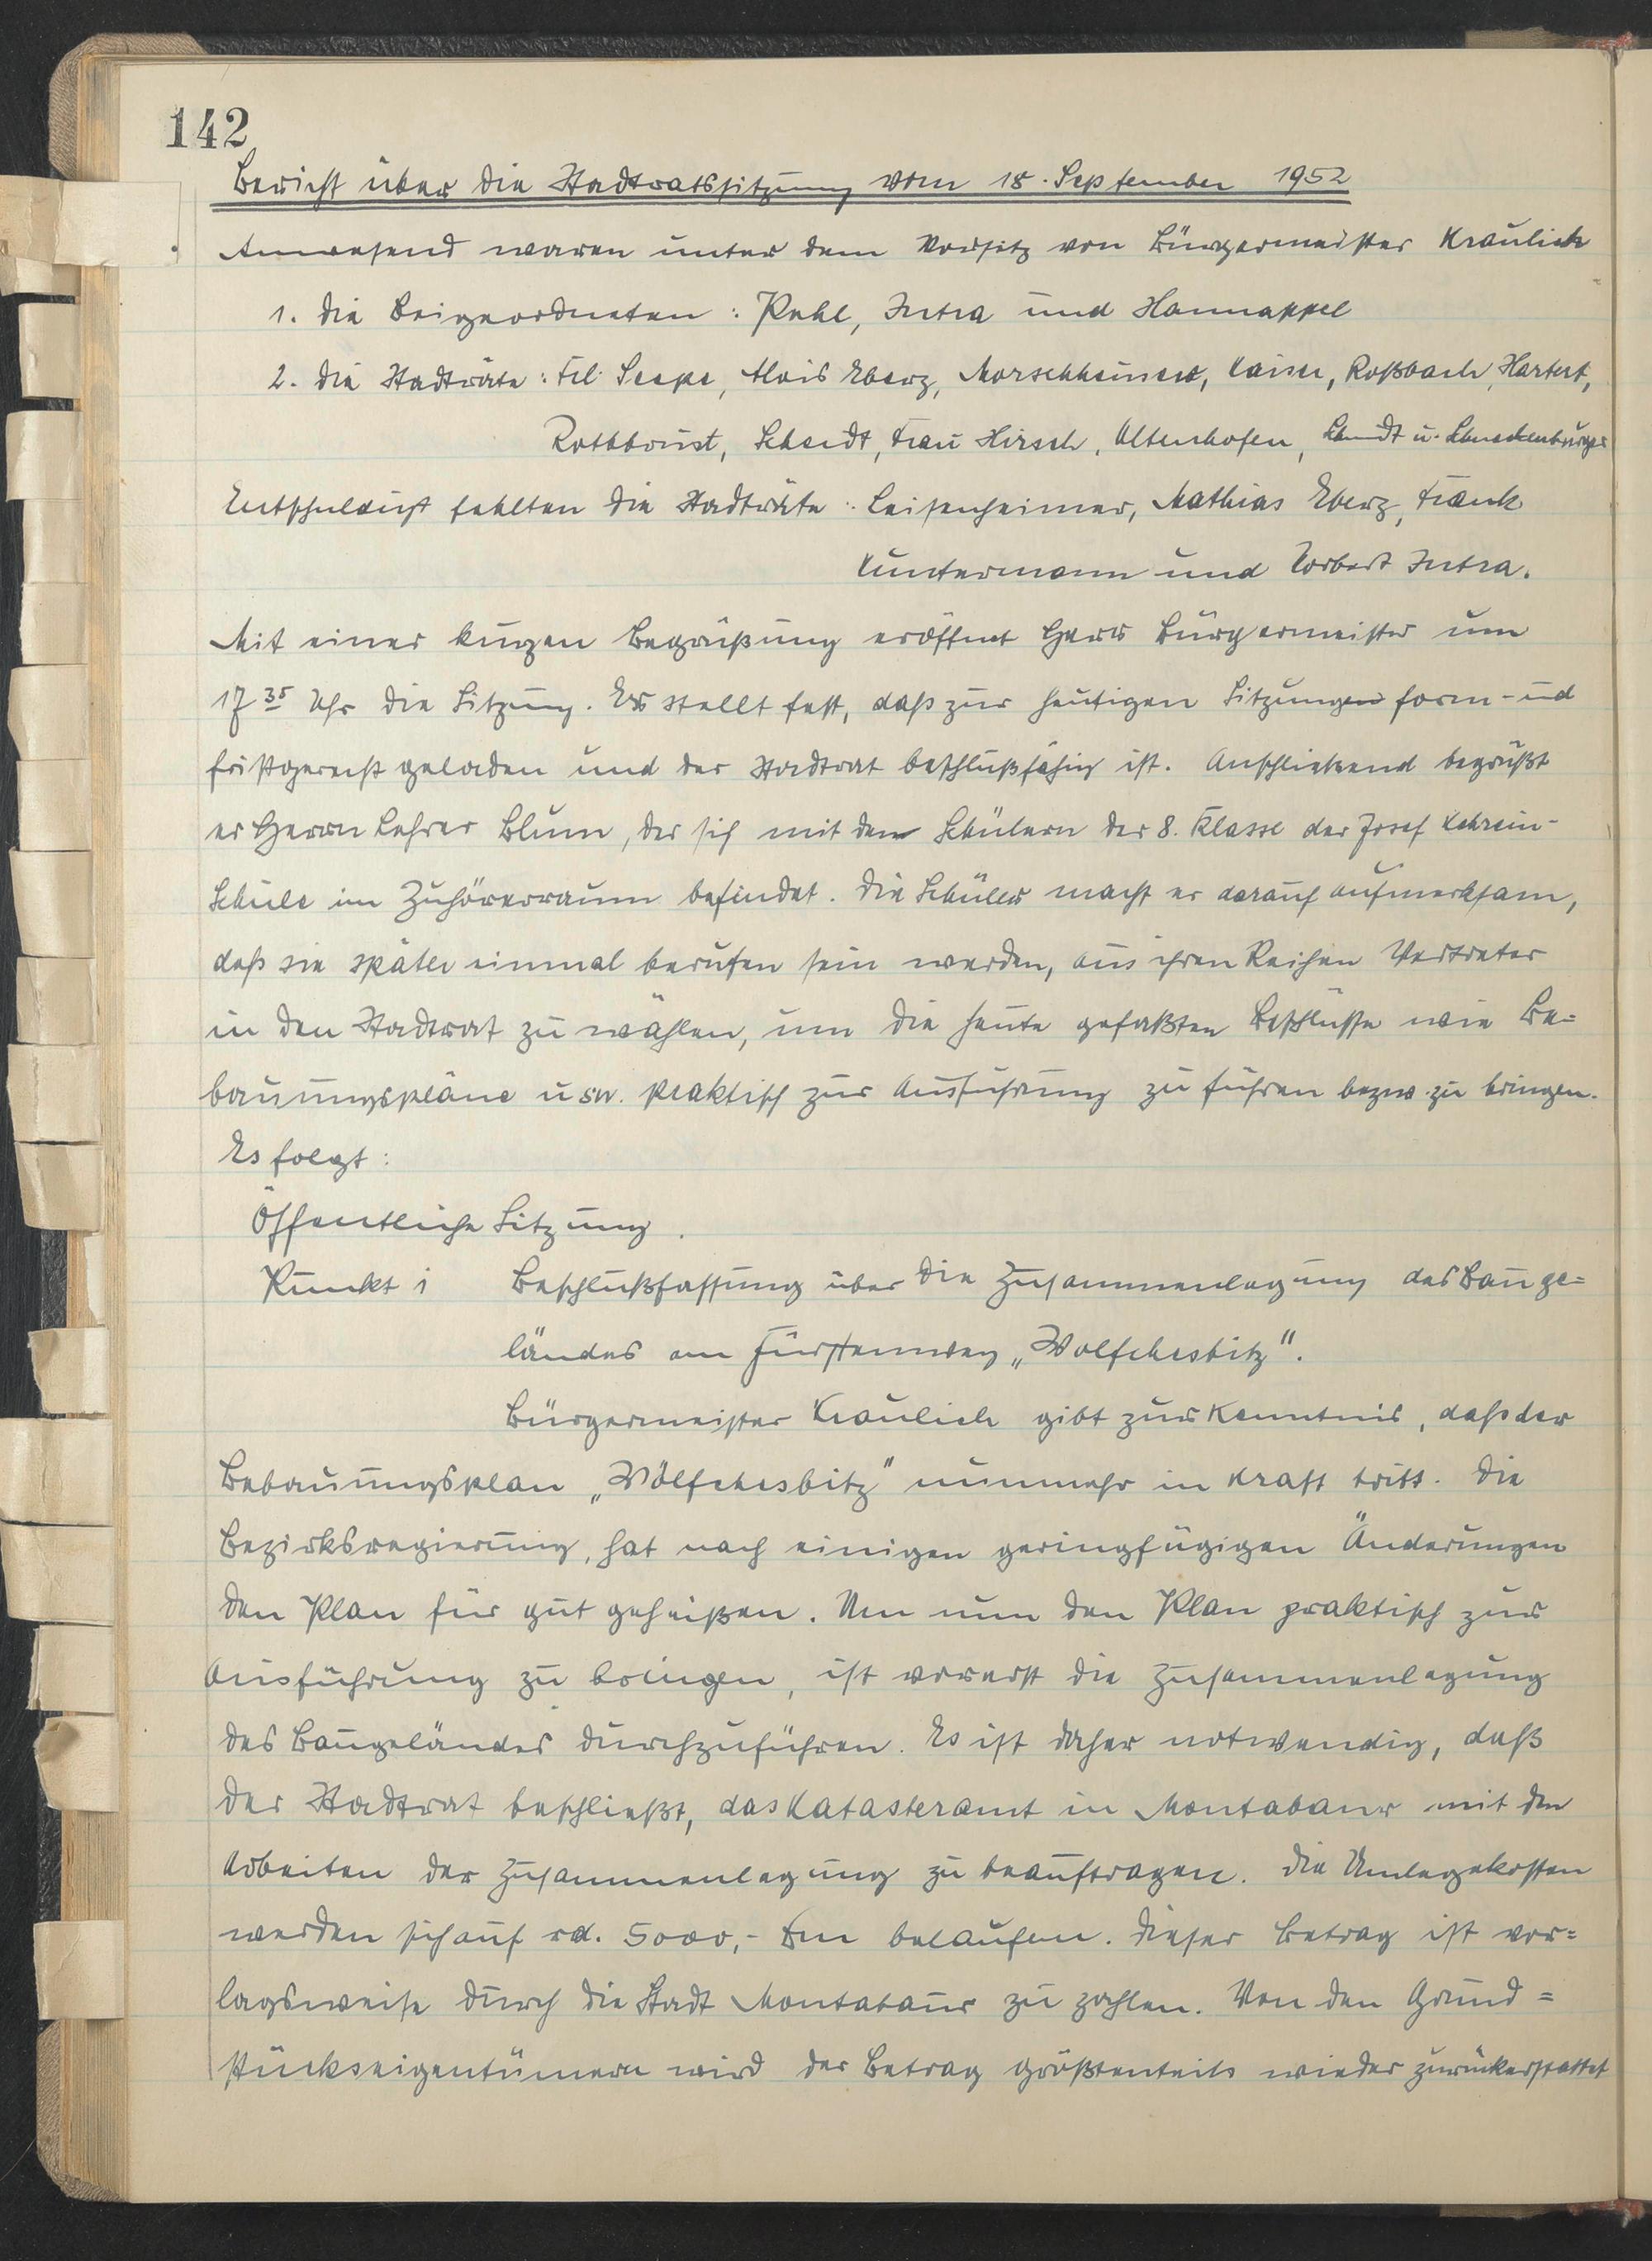 142
Bericht über die Stadtratssitzung vom 18. September 1952
Anwesend waren unter dem Vorsitz von Bürgermeister Kraulich
1. die Beigeordneten: Pehl, Jutra und Hannappel
2. die Stadträte: Frl. Seepe, Alois Eberz, Morschheuser, Kaiser, Roßbach, Hartert,
Rothbrust, Scheidt, Frau Hirsch, Altenhofen, u. Schneckenburger
Entschuldigt fehlten die Stadträte: Leisenheimer, Mathias Eberz, Frank
Kuntermann und Norbert Jutra.
Mit einer kurzen Begrüßung eröffnet Herr Bürgermeister um
17 35 Uhr die Sitzung. Er stellt fest, daß zur heutigen Sitzung form- und
fristgerecht geladen und der Stadtrat beschlußfähig ist. Anschließend begrüßt
er Herrn Lehrer Blum, der sich mit den Schülern der 8. Klasse der Josef Kehrein-
Schule im Zuhörerraum befindet. Die Schüler macht er darauf aufmerksam,
daß sie später einmal berufen sein werden, aus ihren Reihen Vertreter
in den Stadtrat zu wählen, um die heute gefaßten Beschlüsse wie Be=
bauungspläne usw. praktisch zur Ausführung zu führen bezw. zu bringen.
Es folgt:
Öffentliche Sitzung.
Punkt 1 Beschlußfassung über die Zusammenlegung des Bauge=
ländes am Fürstenweg „Wölfchesbitz".
Bürgermeister Kraulich gibt zur Kenntnis, daß der
Bebauungsplan „Wölfchesbitz" nunmehr in Kraft tritt. Die
Bezirksregierung, hat nach einigen geringfügigen Änderungen
den Plan für gut geheißen. Um nun den Plan praktisch zur
Ausführung zu bringen, ist vorerst die Zusammenlegung
des Baugeländes durchzuführen. Es ist daher notwendig, daß
der Stadtrat beschließt, das Katasteramt in Montabaur mit den
Arbeiten der Zusammenlegung zu beauftragen. Die Umlegekosten
werden sich auf rd. 5000,- Dm belaufen. Dieser Betrag ist vor=
lagsweise durch die Stadt Montabaur zu zahlen. Von den Grund=
stückseigentümern wird der Betrag größtenteils wieder zurückerstattet